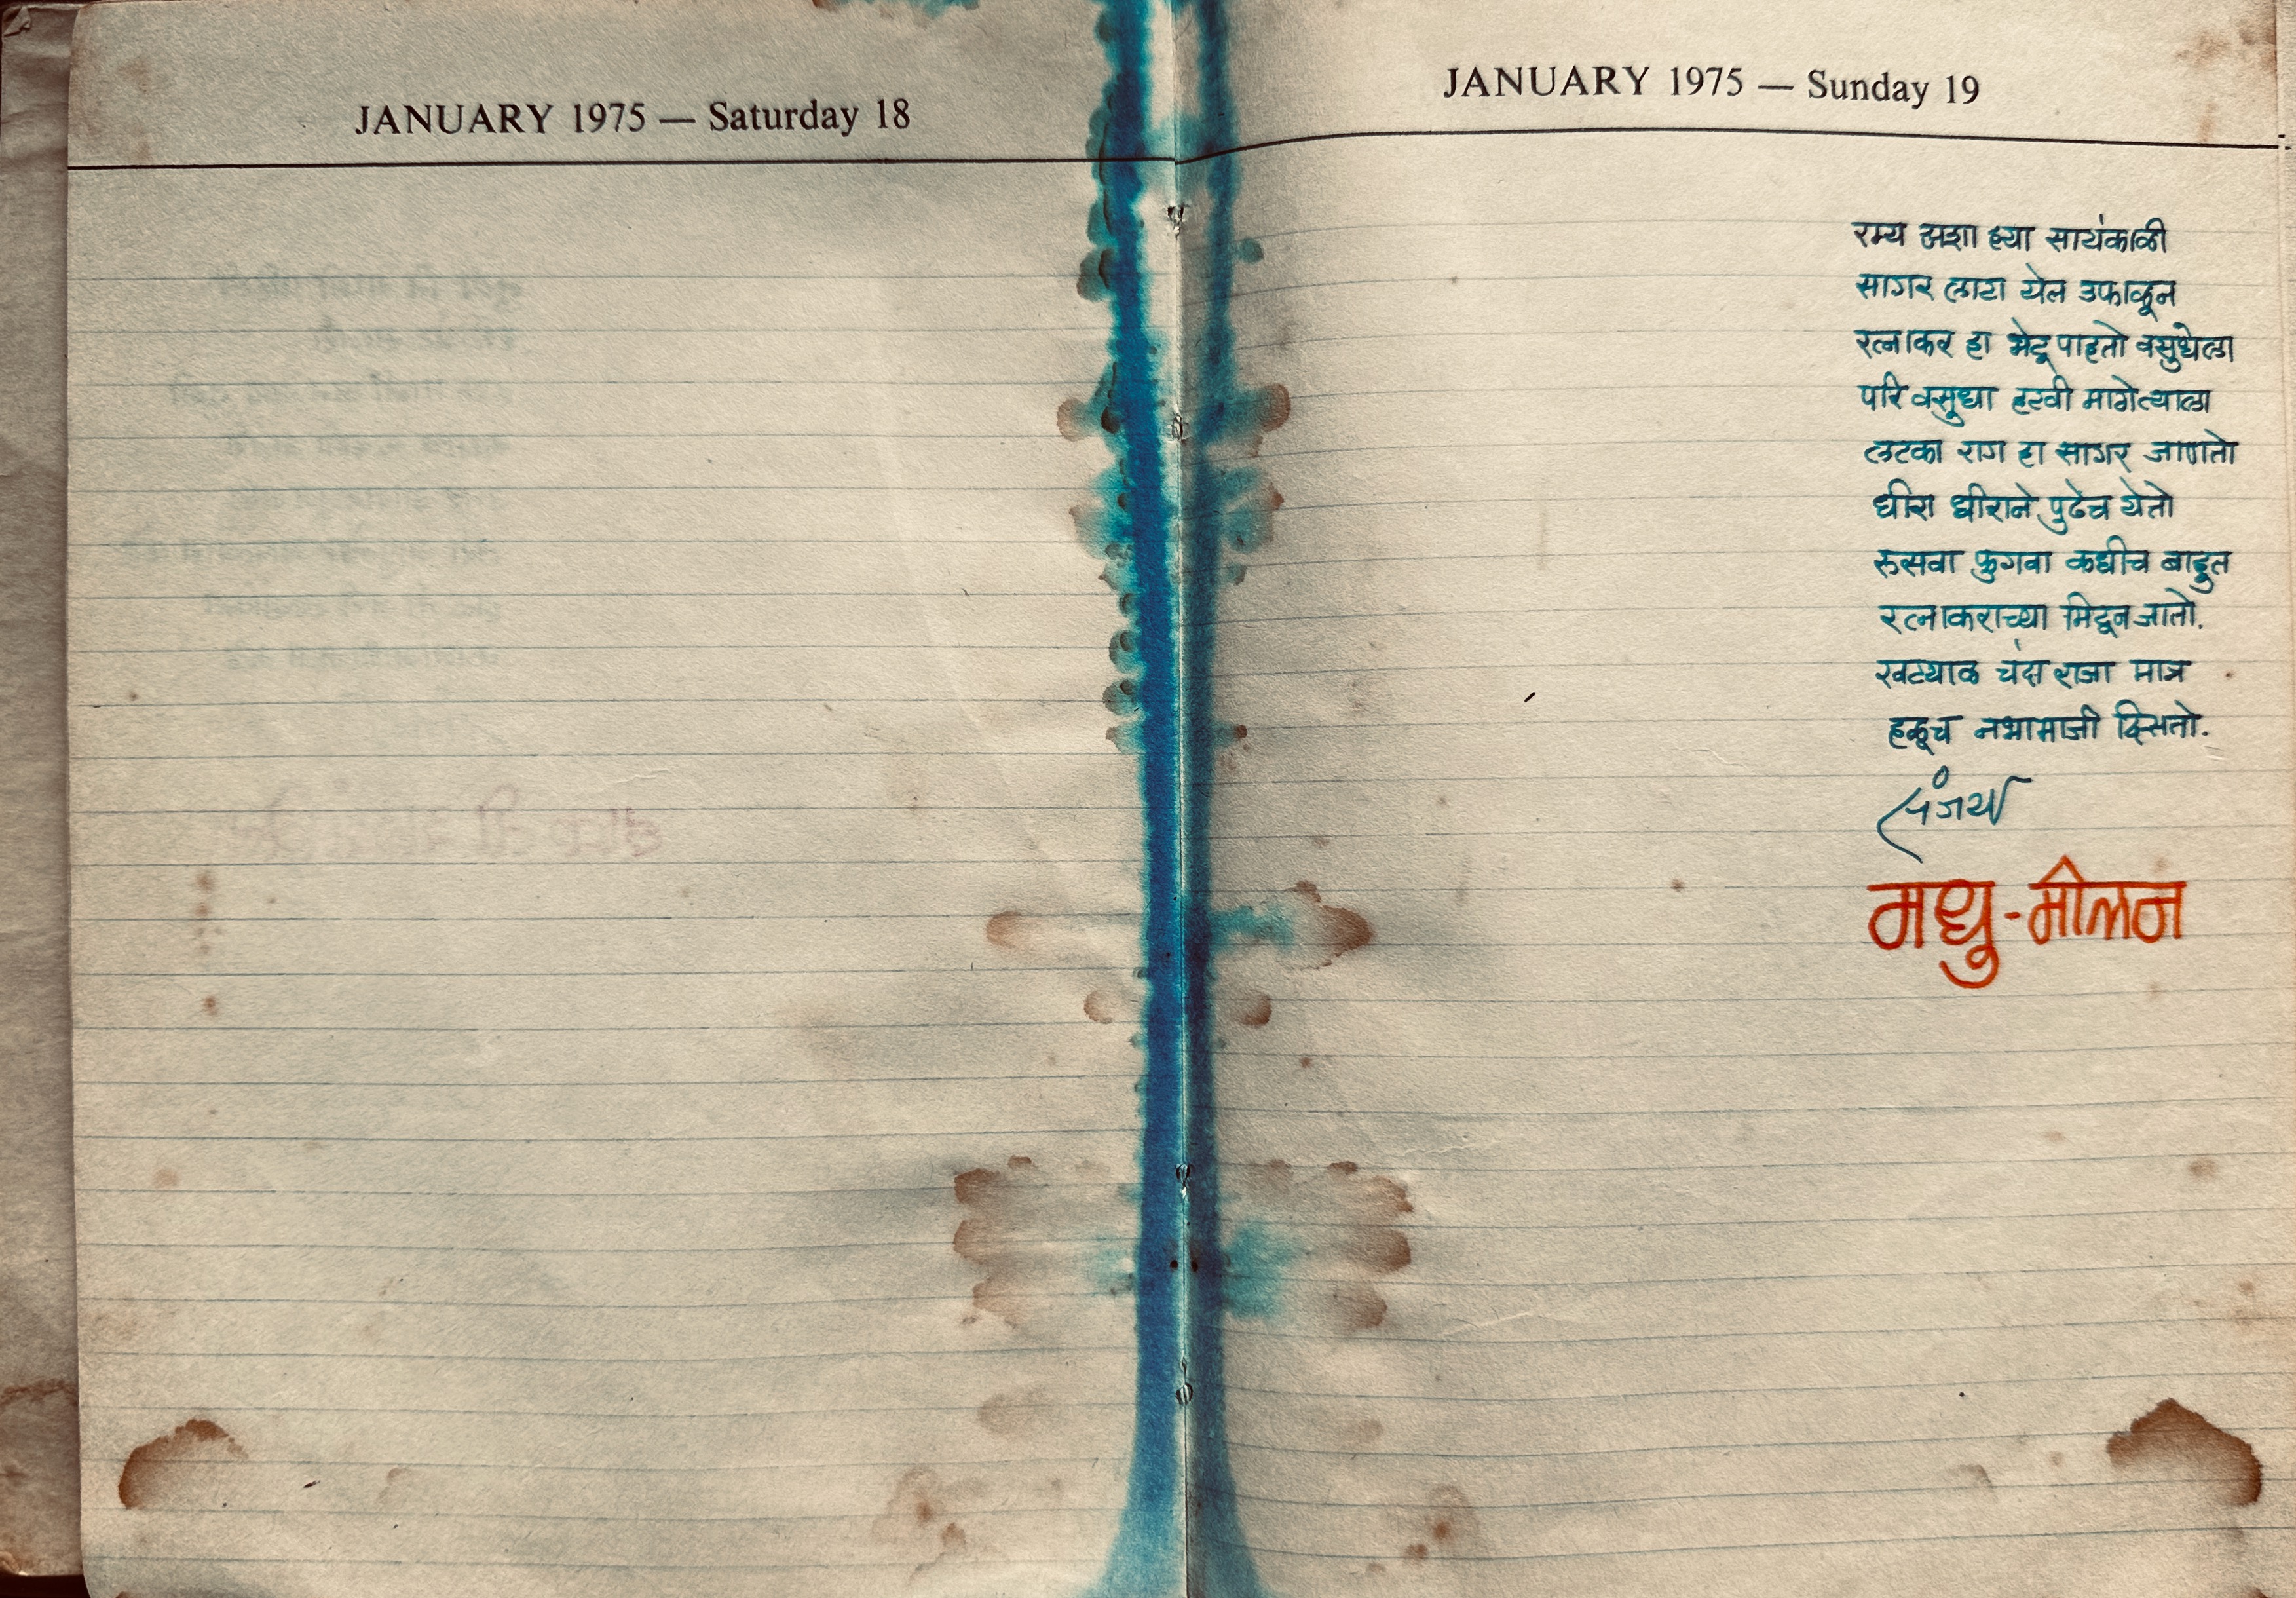 JANUARY 1975 — Saturday 18
JANUARY 1975 — Sunday 19
रम्य अशा ह्या सायंकाळी
सागर लाटा येल उफाळून
रत्नाकर हा भेटू पाहतो वसुधेला
परि वसुधा हटवी मागेत्याला
लटका राग हा सागर जाणतो
धीरा धीराने पुढेच येतो
रूसवा फुगवा कधीच बाहुत
रत्नाकराच्या मिटून जातो.
खट्याळ चंद्र राजा मात्र
हळूच नभामाजी हसितो.
संजय
मधु-मीलन